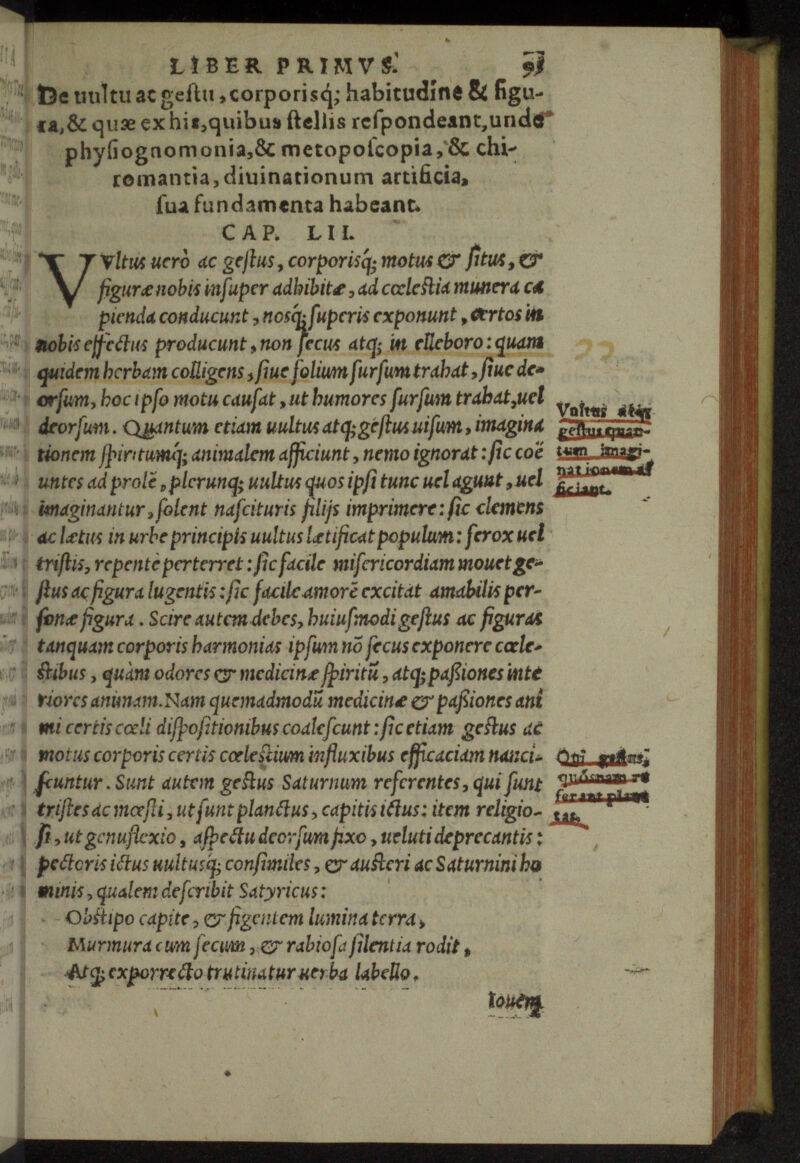 LIBER PRIMVS.
De uultu ac gestu, corporisq; habitudine & figu-
ra, & quæ ex his, quibus stellis respondeant, unde
physiognomonia, & metoposcopia, & chi-
romantia, diuinationum artificia,
sua fundamenta habeant.
CAP. LII.
VVltus uero ac gestus, corporisq; motus & situs, &
figuræ nobis insuper adhibitæ, ad cœlestia munera ca
pienda conducunt, nosq; superis exponunt, certos in
nobis effectus producunt, non secus atq; in elleboro: quam
quidem herbam colligens, siue folium sursum trahat, siue de-
orsum, hoc ipso motu causat, ut humores sursum trahat, uel
deorsum. Quantum etiam uultus atq; gestus uisum, imagina
tionem spiritumq; animalem afficiunt, nemo ignorat: sic coë
untes ad prolē, plerunq; uultus quos ipsi tunc uel agunt, uel
imaginantur, solent nascituris filijs imprimere: sic clemens
ac lætus in urbe principis uultus lætificat populum: ferox uel
tristis, repente perterret: sic facile misericordiam mouet ge-
stus ac figura lugentis: sic facile amorē excitat amabilis per-
sonæ figura. Scire autem debes, huiusmodi gestus ac figuras
tanquam corporis harmonias ipsum nō secus exponere cœle-
stibus, quàm odores & medicinæ spiritū, atq; passiones inte
riores animam. Nam quemadmodū medicinæ & passiones ani
mi certis cœli dispositionibus coalescunt: sic etiam gestus ac
motus corporis certis cœlestium influxibus efficaciam nanci-
scuntur. Sunt autem gestus Saturnum referentes, qui sunt
tristes ac mœsti, ut sunt planctus, capitis ictus: item religio-
si, ut genuflexio, aspectu deorsum fixo, ueluti deprecantis:
pectoris ictus uultusq; consimiles, & austeri ac Saturnini ho
minis, qualem describit Satyricus:
Obstipo capite, & figentem lumina terra,
Murmura cum secum, & rabiosa silentia rodit,
Atq; exporrecto trutinatur uerba labello.
Iouem
Vultus atq;
gestus quan-
tum imagi-
nationem af
ficiant.
Qui gestus,
quosnam re
ferant plane
tas.